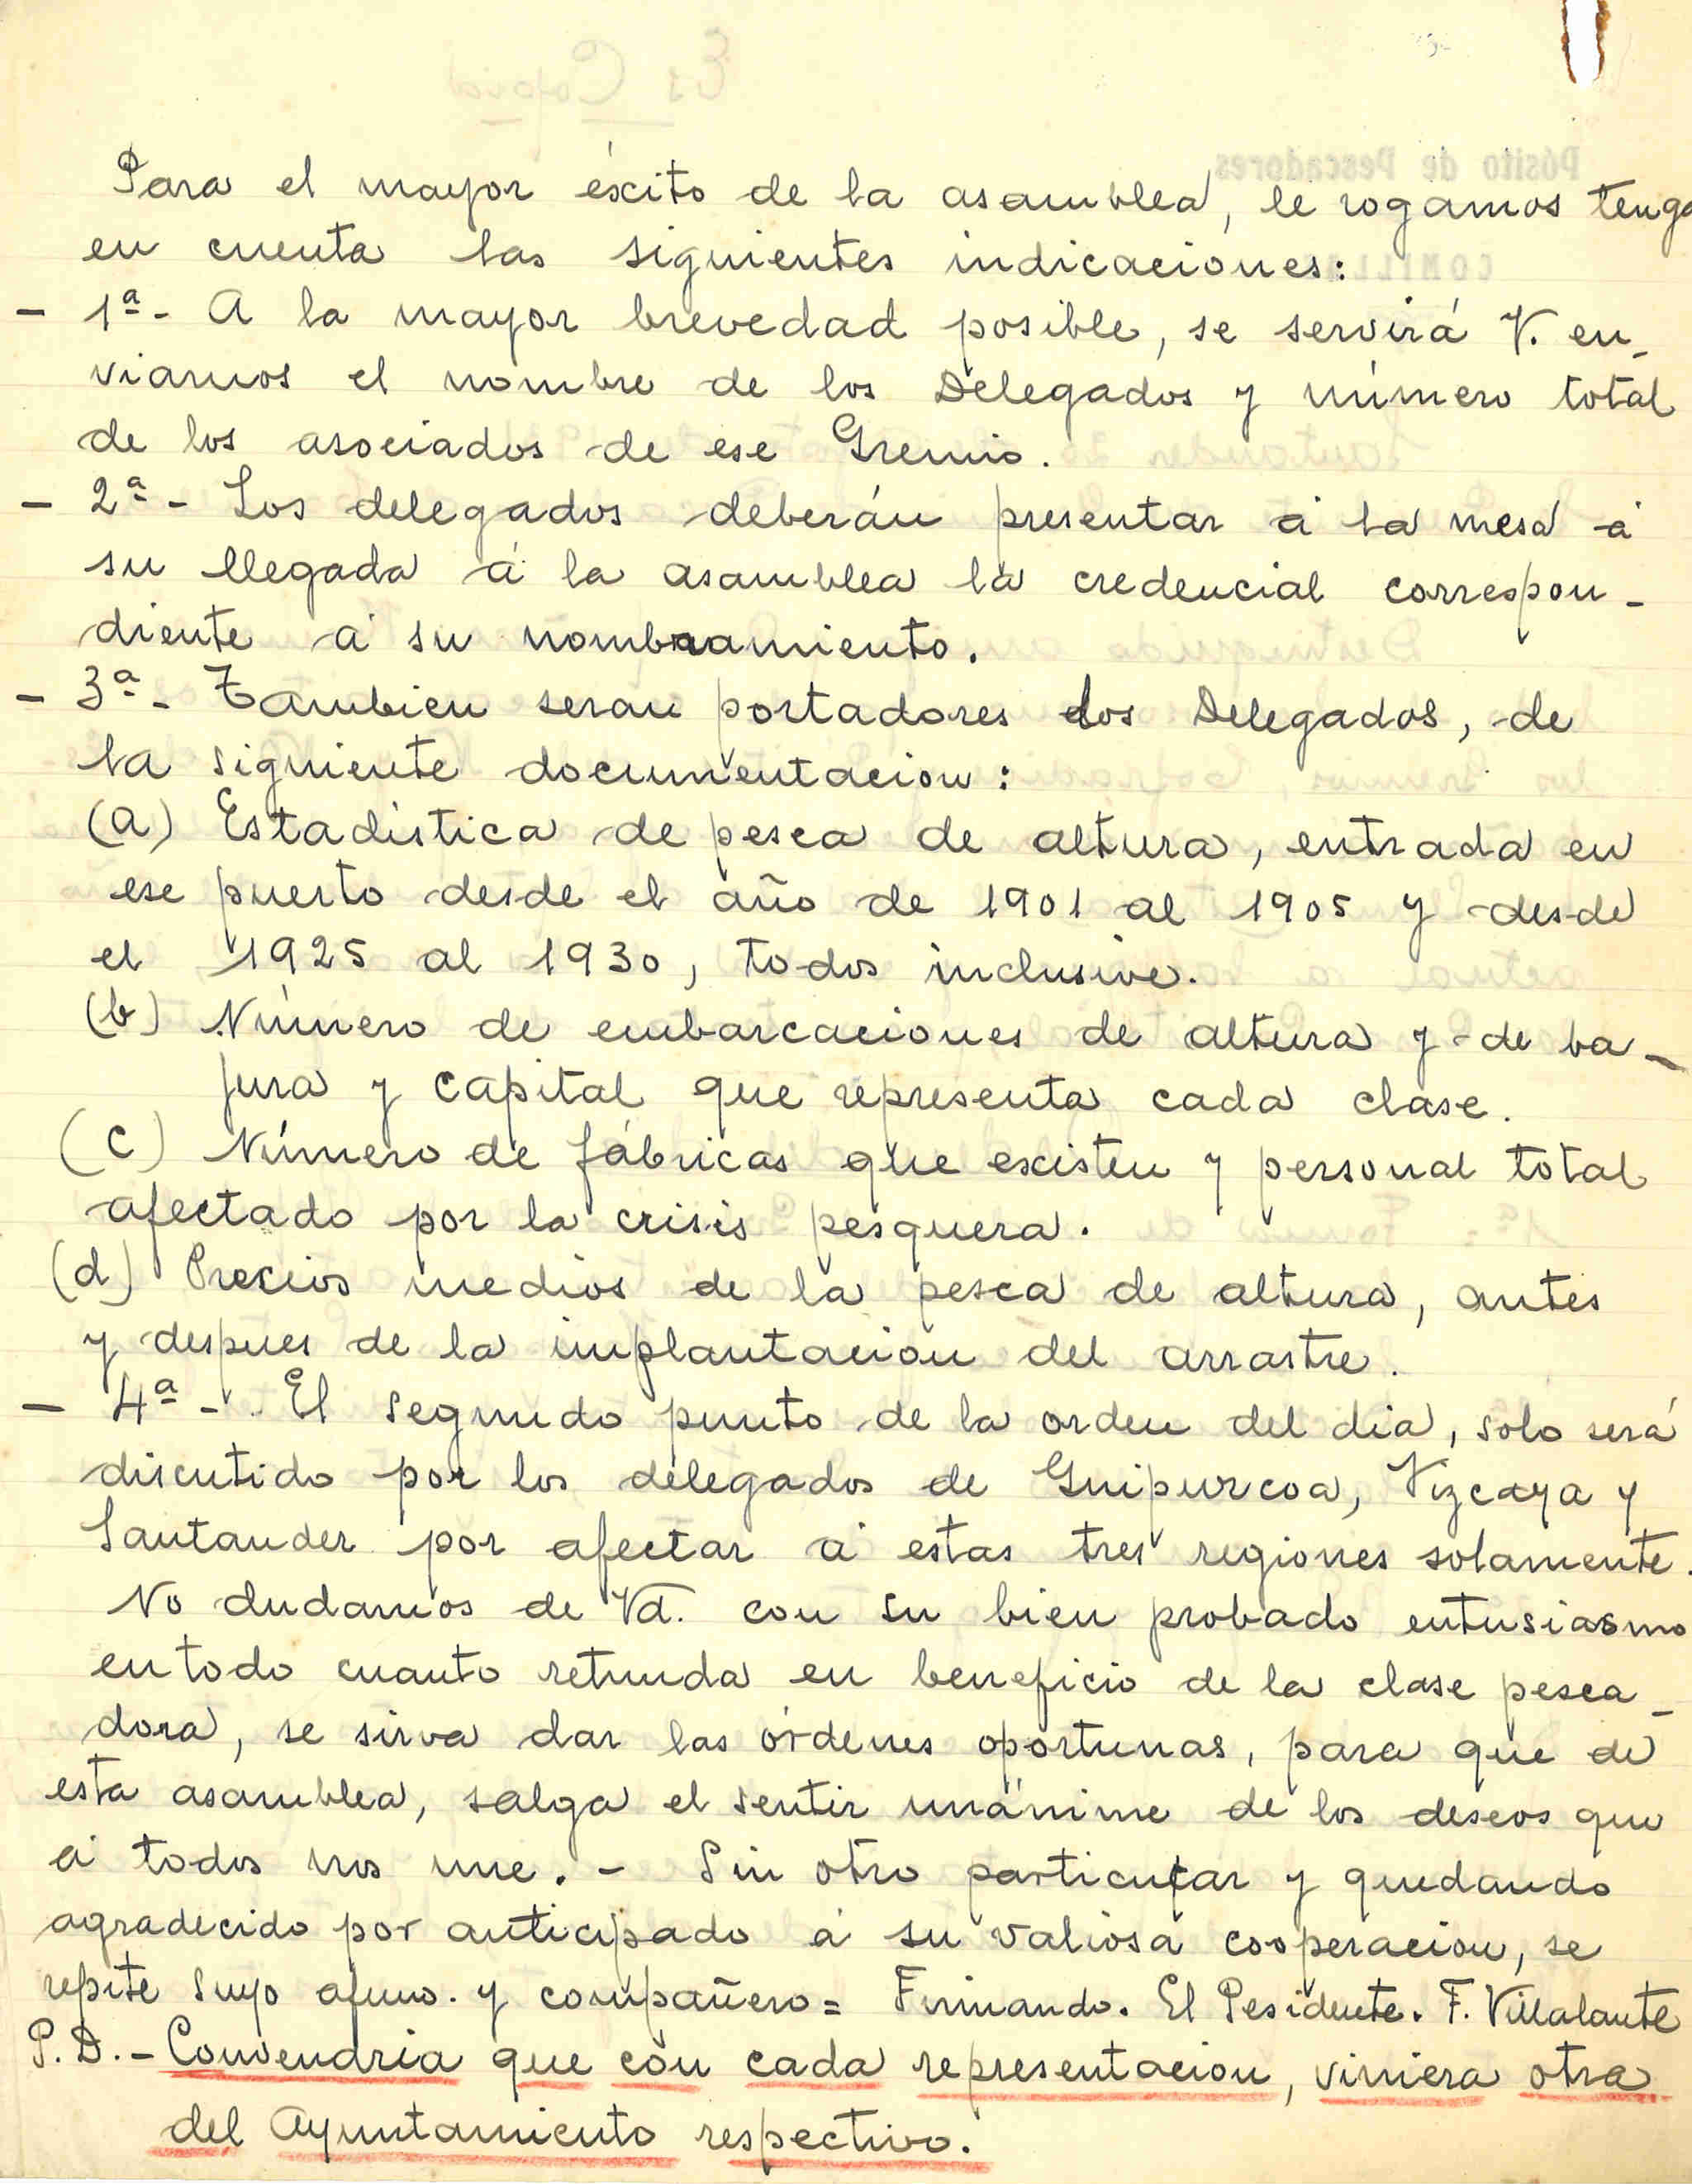 Para el mayor éscito de la asamblea, le rogamos tenga
en cuenta las siguientes indicaciones:
- 1ª- A la mayor brevedad posible, se servirá V. en-
viarnos el nombre de los Delegados y número total
de los asociados de ese Gremio.
- 2ª- Los delegados deberán presentar á la mesa á
su llegada á la asamblea la credencial correspon-
diente á su nombramiento.
- 3ª- Tambien seran portadores los Delegados, de
la siguiente documentacion:
(a) Estadística de pesca de altura, entrada en
ese puerto desde el año de 1901 al 1905 y desde
el 1925 al 1930, todos inclusive.
(b) Número de embarcaciones de altura y de ba-
jura y capital que representa cada clase.
(c) Número de fábricas que escisten y personal total
afectado por la crisis pesquera.
(d) Precios medios de la pesca de altura, antes
y despues de la implantacion del arrastre.
- 4ª- El segundo punto de la orden del dia, solo será
discutido por los delegados de Guipuzcoa, Vizcaya y
Santander por afectar á estas tres regiones solamente.
No dudamos de Vd. con su bien probado entusiasmo
en todo cuanto retunda en beneficio de la clase pesca-
dora, se sirva dar las órdenes oportunas, para que de
esta asamblea, salga el sentir unánime de los deseos que
á todos nos une. - Sin otro particular y quedando
agradecido por anticipado á su valiosa cooperacion, se
repite suyo afmo. y compañero = Firmando. El Pesidente. F. Villalante
P.D. - Convendria que con cada representacion, viniera otra
del Ayuntamiento respectivo.
Pósito de Pescadores